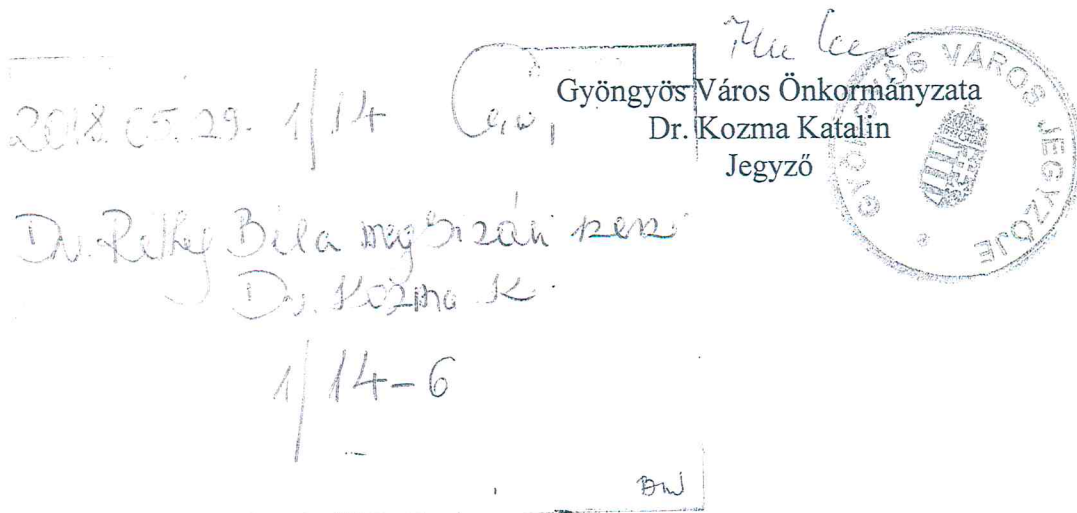 2018.05.29. 1/14
Gyöngyös Város Önkormányzata
Dr. Kozma Katalin
Jegyző
GYÖNGYÖS VÁROS JEGYZŐJE
Dr. Réthy Béla megbízási szerz
Dr. Kozma K.
1/14-6